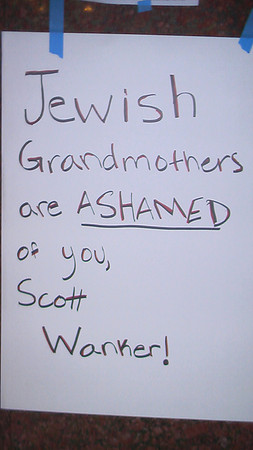 Jewish
Grandmothers
are ASHAMED
of you,
Scott
Wanker!